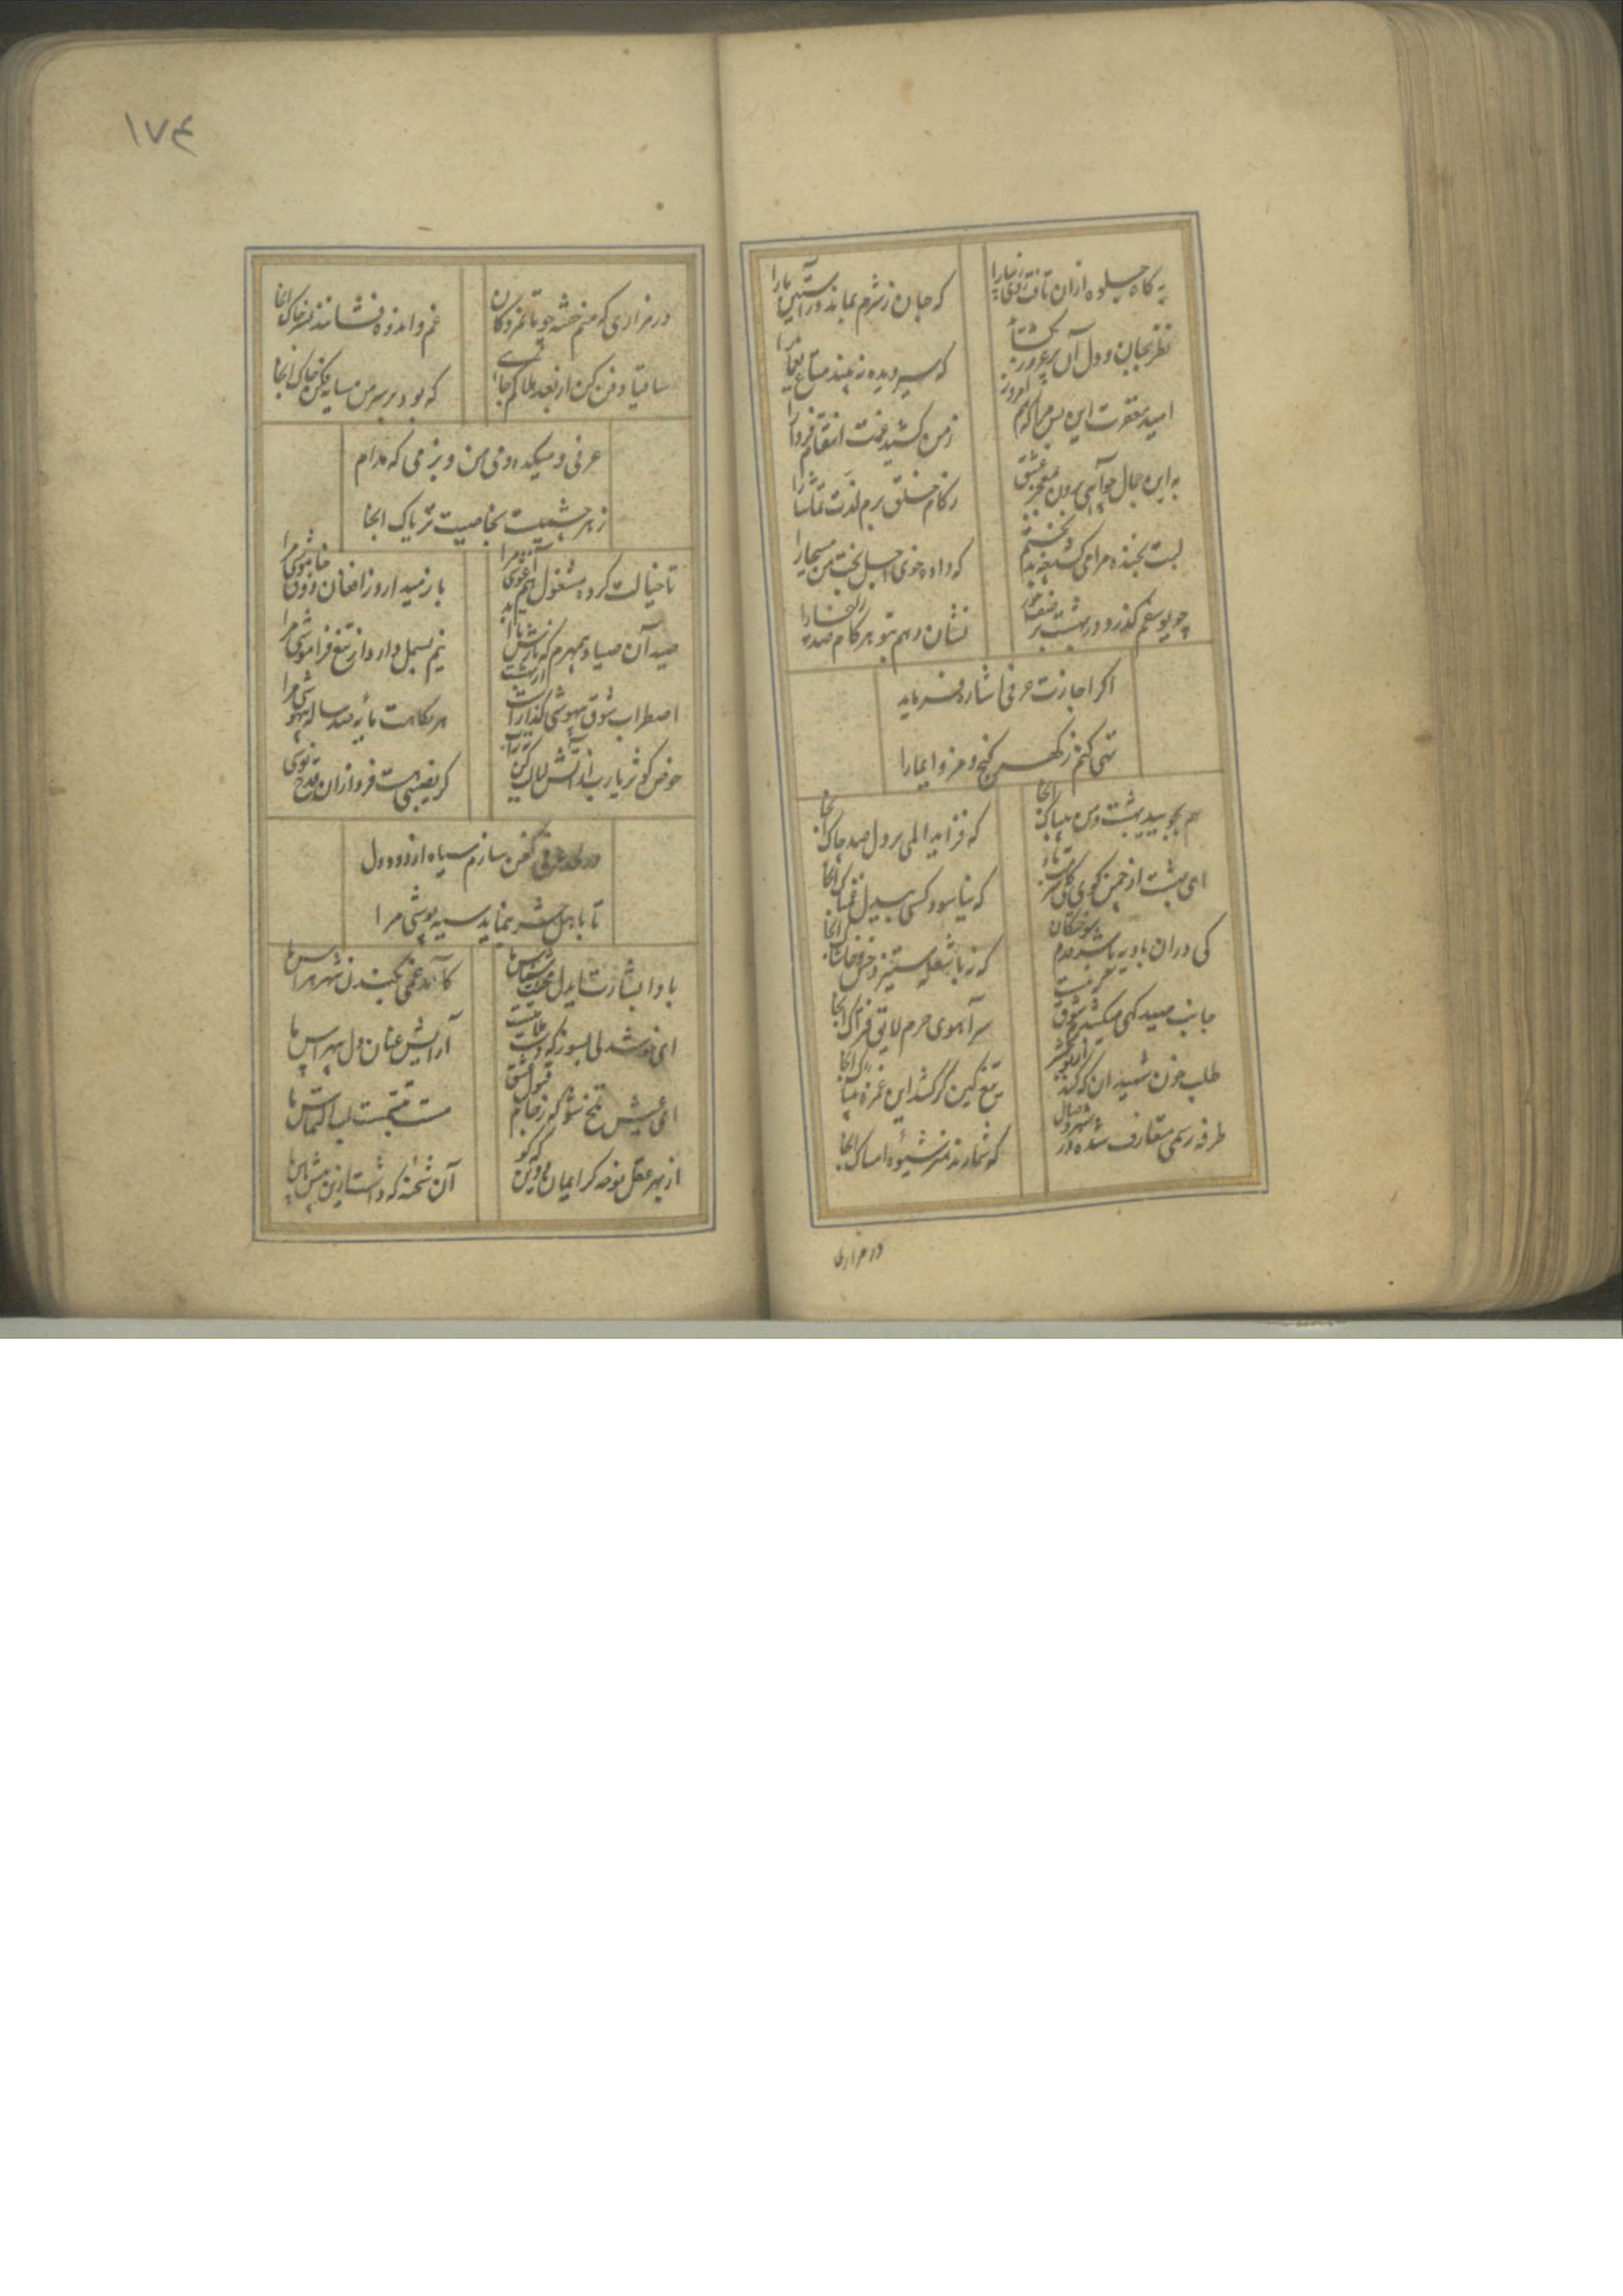 به گاه جلوه ازان تافت روی زیبا را
که جان ز شرم نماند در آستین ما را
نظر بجان و دل آن پرغرور نگشاید
که سیر دیده نه بیند متاع یغما را
امید مغفرت این بس مرا که هم امروز
ز من کشید غمت انتقام فردا را
به این جمال چو آیی برون بمعجز عشق
ز کام خلق برم لذت تماشا را
لبت بخنده مرا می کشد
که داده خوی اجل بخت من مسیحا را
چو یوسفم گذرد در بهشت بر
نشان دهم بتو بر هر کام صد زلیخا را
اگر اجازت عرفی اشاره فرماید
تهی کنم ز گهر گنج رمز و ایما را
هم بجویید بهشت و من بیباک آنجا
که فزاید المی بر دل صد چاک آنجا
ای بهشت از چمن کوی
که نیاسود کسی بیدل غمناک آنجا
کی دران بادیه باشد قدم سوختگان
که زبا شعله ستیزد خس و خاشاک آنجا
جانب صیدگهی میکشدم شوق که نیست
سر آهوی حرم لایق فتراک آنجا
طلب خون شهیدان که کند در محشر
تیغ کین گر کشد این غمزه بیباک آنجا
طرفه رسمی متعارف شده در شهر وصال
که شمارند هنر شیوه امساک آنجا
در مزاری
۱۷۴
در مزاری که منم خفته چو ماتمزدگان
غم و اندوه فشانند بسر خاک آنجا
ساقیا دفن کن از بعد هلاکم جایی
که بود بر سر من سایه فکن تاک آنجا
عرفی و میکده و می من و بزمی که مدام
زهر چشمیست بخاصیت تریاک آنجا
تا خیالت کرده مشغول هم آغوشی مرا
باز نمیدارد ز افغان ذوق خاموشی مرا
صید آن صیاد بیمهرم که بازش
نیم بسمل دارد از تیغ فراموشی مرا
اضطراب شوق بیهوشی گذارد
هر نگاهت مایه صد ساله بیهوشی مرا
حوض کوثر یارب از آتش لبالب کن
گر نصیبی هست فردا زان قدح نوشی مرا
عرفی کفن سازم سیاه از دود دل
تا باهل حشر بنماید سیه پوشی مرا
باد ابشارت ای دل محنت شناس ما
کآمد غمی بکندن شهر هراس ما
ای خوشدلی بسوز که
آرایش عنان دل بیهراس ما
ای عیش تلخ شو که ز جام قبول عشق
مست محبت است لب التماس ما
از بهر عقل نوحه گر ایمان و دین که کو
آن شحنه که داشت ازین پیش پاس ما